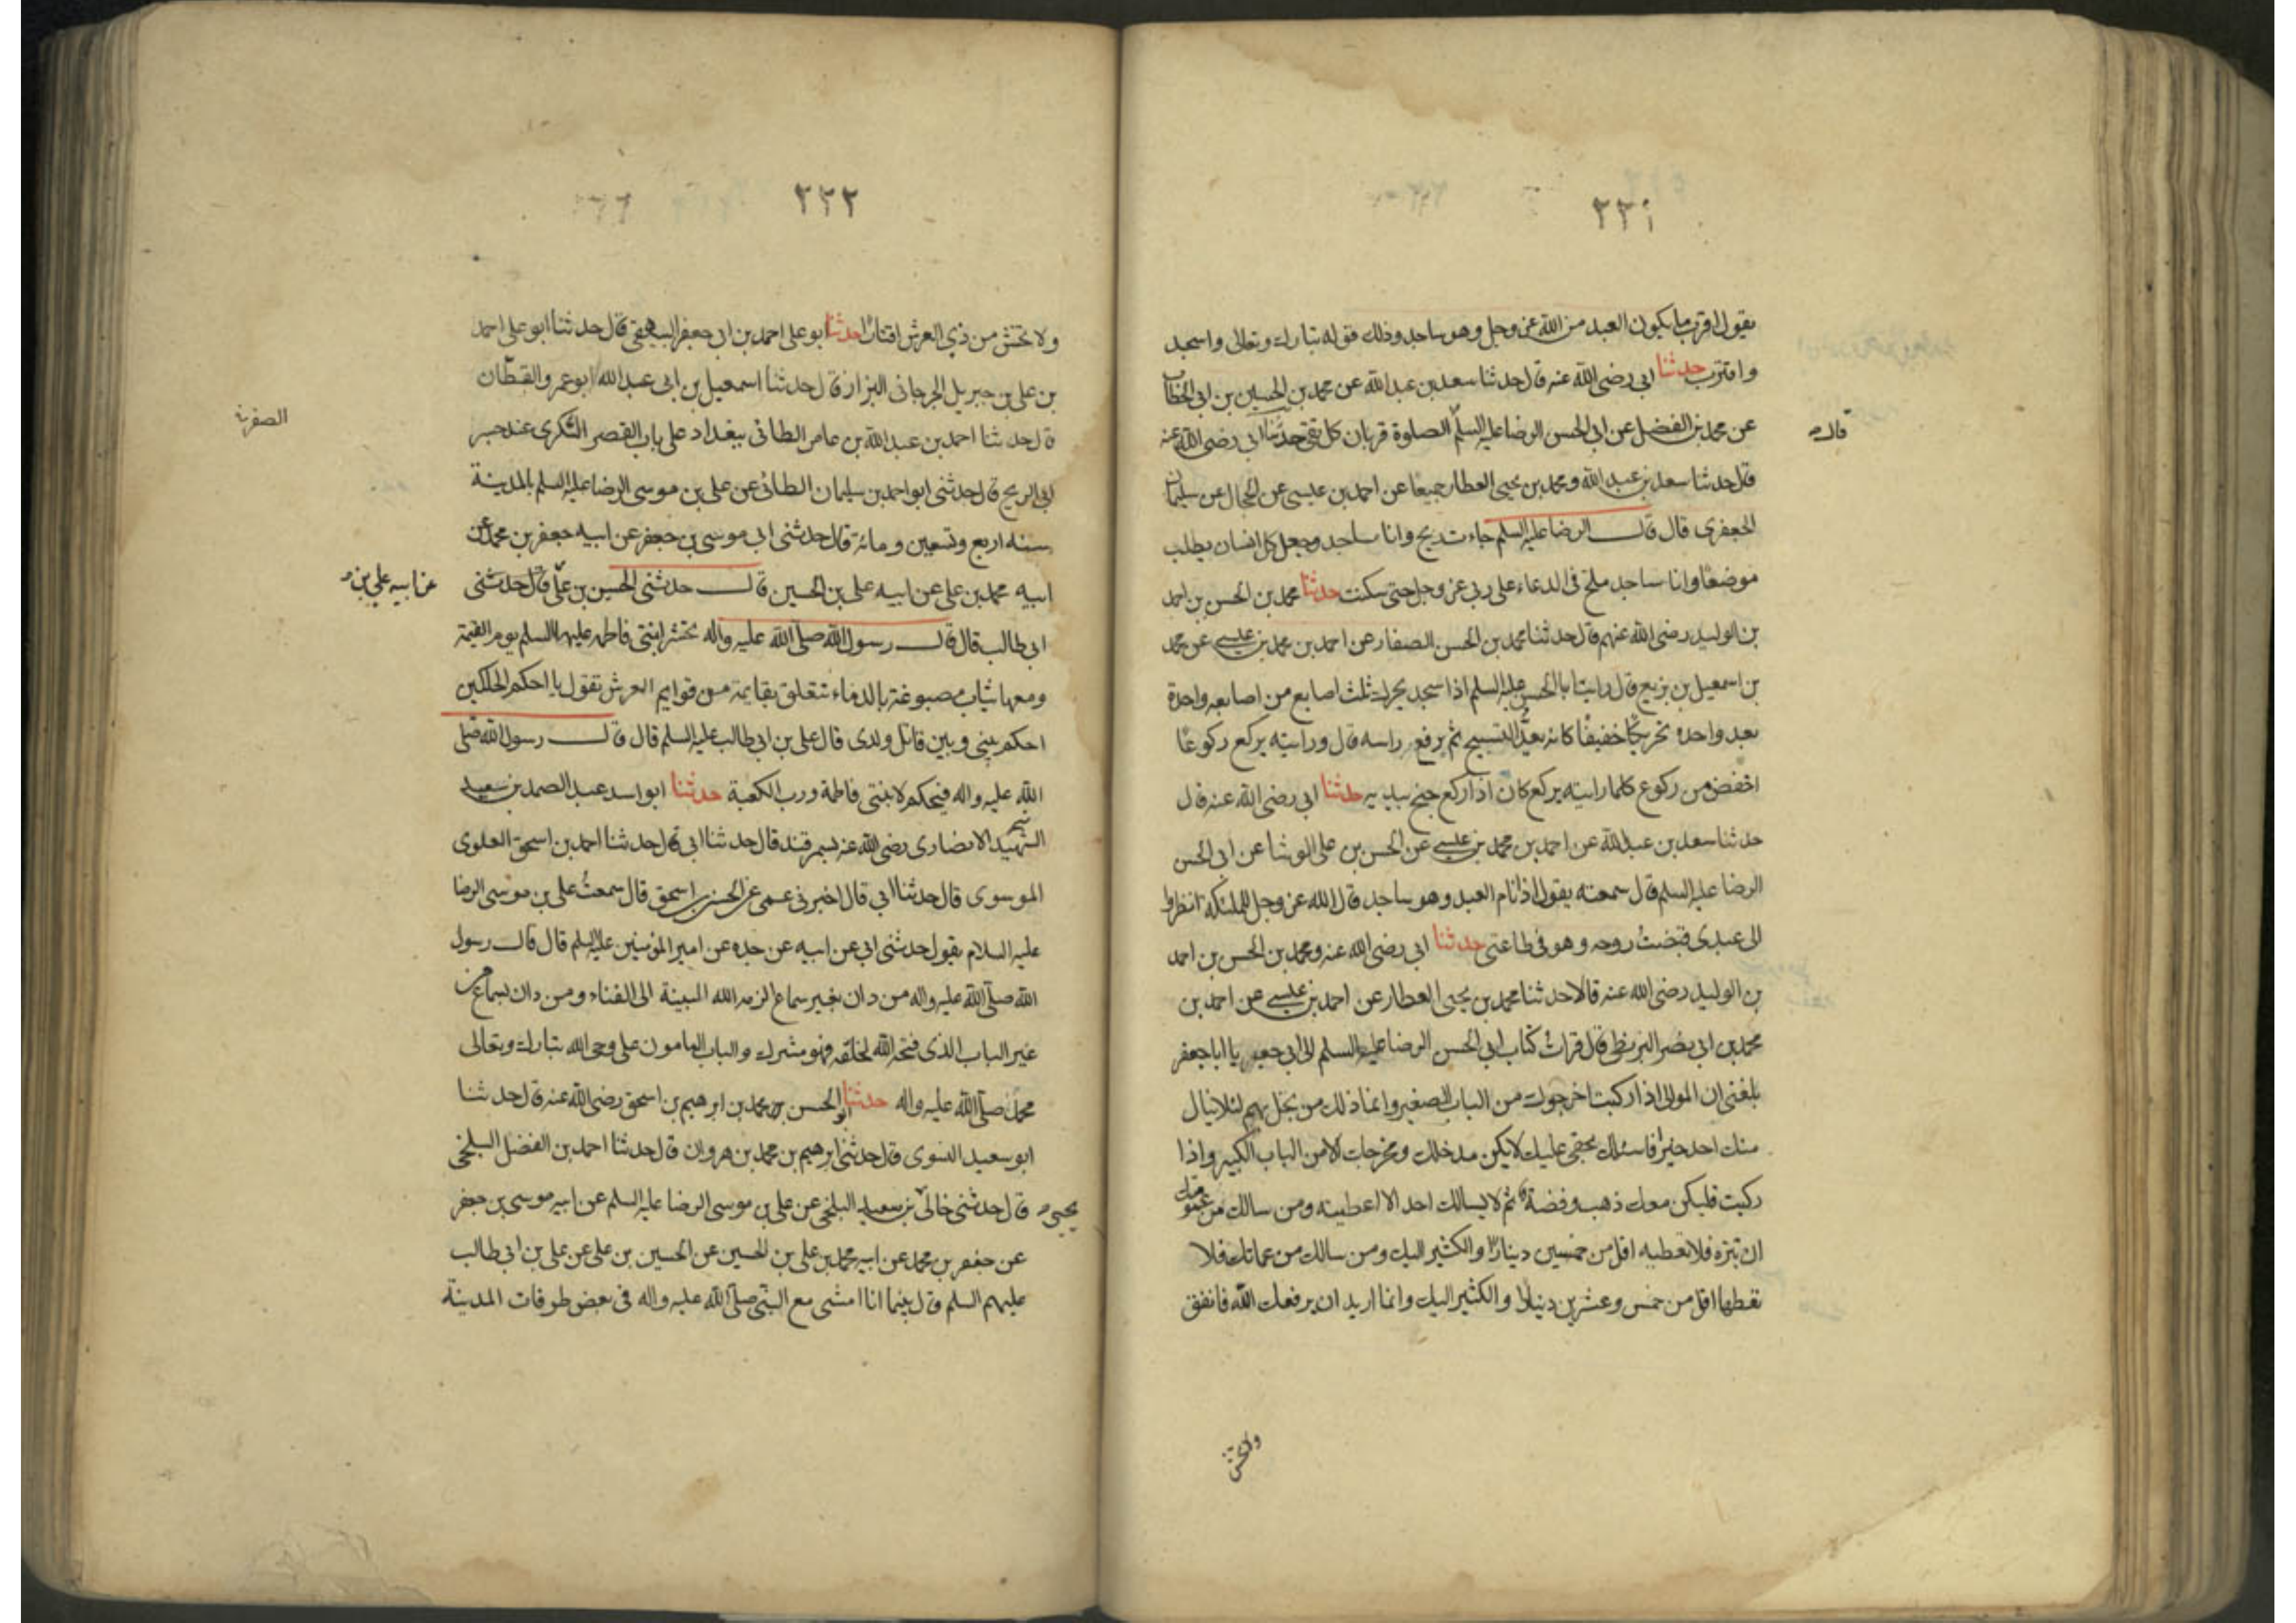 ٢٢١
يقول اقرب ما يكون العبد من الله عز وجل وهو ساجد وذلك قوله تبارك وتعالى واسجد
واقترب حدثنا ابي رضى الله عنه قال حدثنا سعد بن عبد الله عن محمد بن الحسين بن ابى الخطاب
قال
عن محمد بن الفضيل عن ابى الحسن الرضا عليه السلم الصلوة قربان كل تقى حدثنا ابى رضى الله عنه
قال حدثنا سعد بن عبد الله ومحمد بن يحيى العطار جميعا عن احمد بن عيسى عن الحجال عن سليمان
الجعفرى قال قال الرضا عليه السلم جاءت ريح وانا ساجد وجعل كل انسان يطلب
موضعا وانا ساجد ملح فى الدعاء على ربى عز وجل حتى سكنت حدثنا محمد بن الحسن بن احمد
بن الوليد رضى الله عنهم قال حدثنا محمد بن الحسن الصفار عن احمد بن محمد بن عيسى عن محمد
بن اسمعيل بن بزيع قال رايت ابا الحسن عليه السلم اذا سجد يحرك ثلث اصابع من اصابعه واحدة
بعد واحده تحريكا خفيفا كانه يعد التسبيح ثم يرفع راسه قال ورايته يركع ركوعا
اخفض من ركوع كلما رايته يركع كان اذا ركع جنح بيديه حدثنا ابى رضى الله عنه قال
حدثنا سعد بن عبد الله عن احمد بن محمد بن عيسى عن الحسن بن على الوشا عن ابى الحسن
الرضا عليه السلم قال سمعته يقول اذا نام العبد وهو ساجد قال الله عز وجل للملئكه انظروا
الى عبدى قبضت روحه وهو فى طاعتى حدثنا ابى رضى الله عنه ومحمد بن الحسن بن احمد
بن الوليد رضى الله عنه قالا حدثنا محمد بن يحيى العطار عن احمد بن عيسى عن احمد بن
محمد بن ابى نصر البزنطى قال قرات كتاب ابى الحسن الرضا عليه السلم الى ابى جعفر يا ابا جعفر
بلغنى ان الموالى اذا ركبت اخرجوك من الباب الصغير وانما ذلك من بخل بهم لئلا ينال
منك احد خيرا فاسئلك بحقى عليك لا يكن مدخلك ومخرجك الا من الباب الكبير واذا
ركبت فليكن معك ذهب وفضة ثم لا يسالك احد الا اعطيته ومن سالك من عمومتك
ان تبره فلا تعطيه اقل من خمسين دينارا والكثير اليك ومن سالك من عماتك فلا
تعطها اقل من خمس وعشرين دينارا والكثير اليك وانما اريد ان يرفعك الله فانفق
ولا تخش
٢٢٢
ولا تخش من ذي العرش اقتارا حدثنا ابو على احمد بن ابى جعفر البيهقى قال حدثنا ابو على احمد
بن على بن جبريل الجرجانى البزاز قال حدثنا اسمعيل بن ابى عبد الله ابو عمرو القطان
قال حدثنا احمد بن عبد الله بن عامر الطائى ببغداد على باب القصر السكرى عند جسر
ابى الريح قال حدثنى ابو احمد بن سليمان الطائى عن على بن موسى الرضا عليه السلم بالمدينة
سنه اربع وتسعين ومائة قال حدثنى ابى موسى بن جعفر عن ابيه جعفر بن محمد عن
ابيه محمد بن على عن ابيه على بن الحسين قال حدثنى الحسين بن على قال حدثنى
عن ابيه علي بن
ابى طالب قال قال رسول الله صلى الله عليه واله تحشر ابنتى فاطمه عليها السلم يوم القيمة
ومعها ثياب مصبوغة بالدماء تتعلق بقايمة من قوايم العرش تقول يا احكم الحاكمين
احكم بينى وبين قاتل ولدى قال على بن ابى طالب عليه السلم قال قال رسول الله صلى
الله عليه واله فيحكم لابنتى فاطمة ورب الكعبة حدثنا ابو اسد عبد الصمد بن
الشهيد الانصارى رضى الله عنه بسمرقند قال حدثنا ابى قال حدثنا احمد بن اسحق العلوى
الموسوى قال حدثنا ابى قال اخبرنى عمى عن الحسن بن اسحق قال سمعت على بن موسى الرضا
عليه السلام يقول حدثنى ابى عن ابيه عن جده عن امير المؤمنين عليه السلم قال قال رسول
الله صلى الله عليه واله من دان بغير سماع الزمه الله البينة الى الفناء ومن دان بسماع من
غير الباب الذى فتحه الله لخلقه فهو مشرك والباب المامون على وحى الله تبارك وتعالى
محمد صلى الله عليه واله حدثنا ابو الحسن بن محمد بن ابرهيم بن اسحق رضى الله عنه قال حدثنا
ابو سعيد النسوى قال حدثنى ابرهيم بن محمد بن هرون قال حدثنا احمد بن الفضل البلخى
قال حدثنى خالى بن سعيد البلخى عن على بن موسى الرضا عليه السلم عن ابيه موسى بن جعفر
يحيى
عن جعفر بن محمد عن ابيه محمد بن على بن الحسين عن الحسين بن على عن على بن ابى طالب
عليهم السلم قال بينما انا امشى مع النبى صلى الله عليه واله فى بعض طرقات المدينة